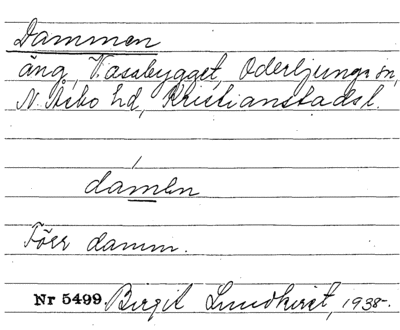 Dammen
äng, Vassbygget, Oderljunga sn,
N. Åsbo hd, Kristianstads l.
damen
Förr damm.
Nr 5499 Birgit Lundkvist, 1938.